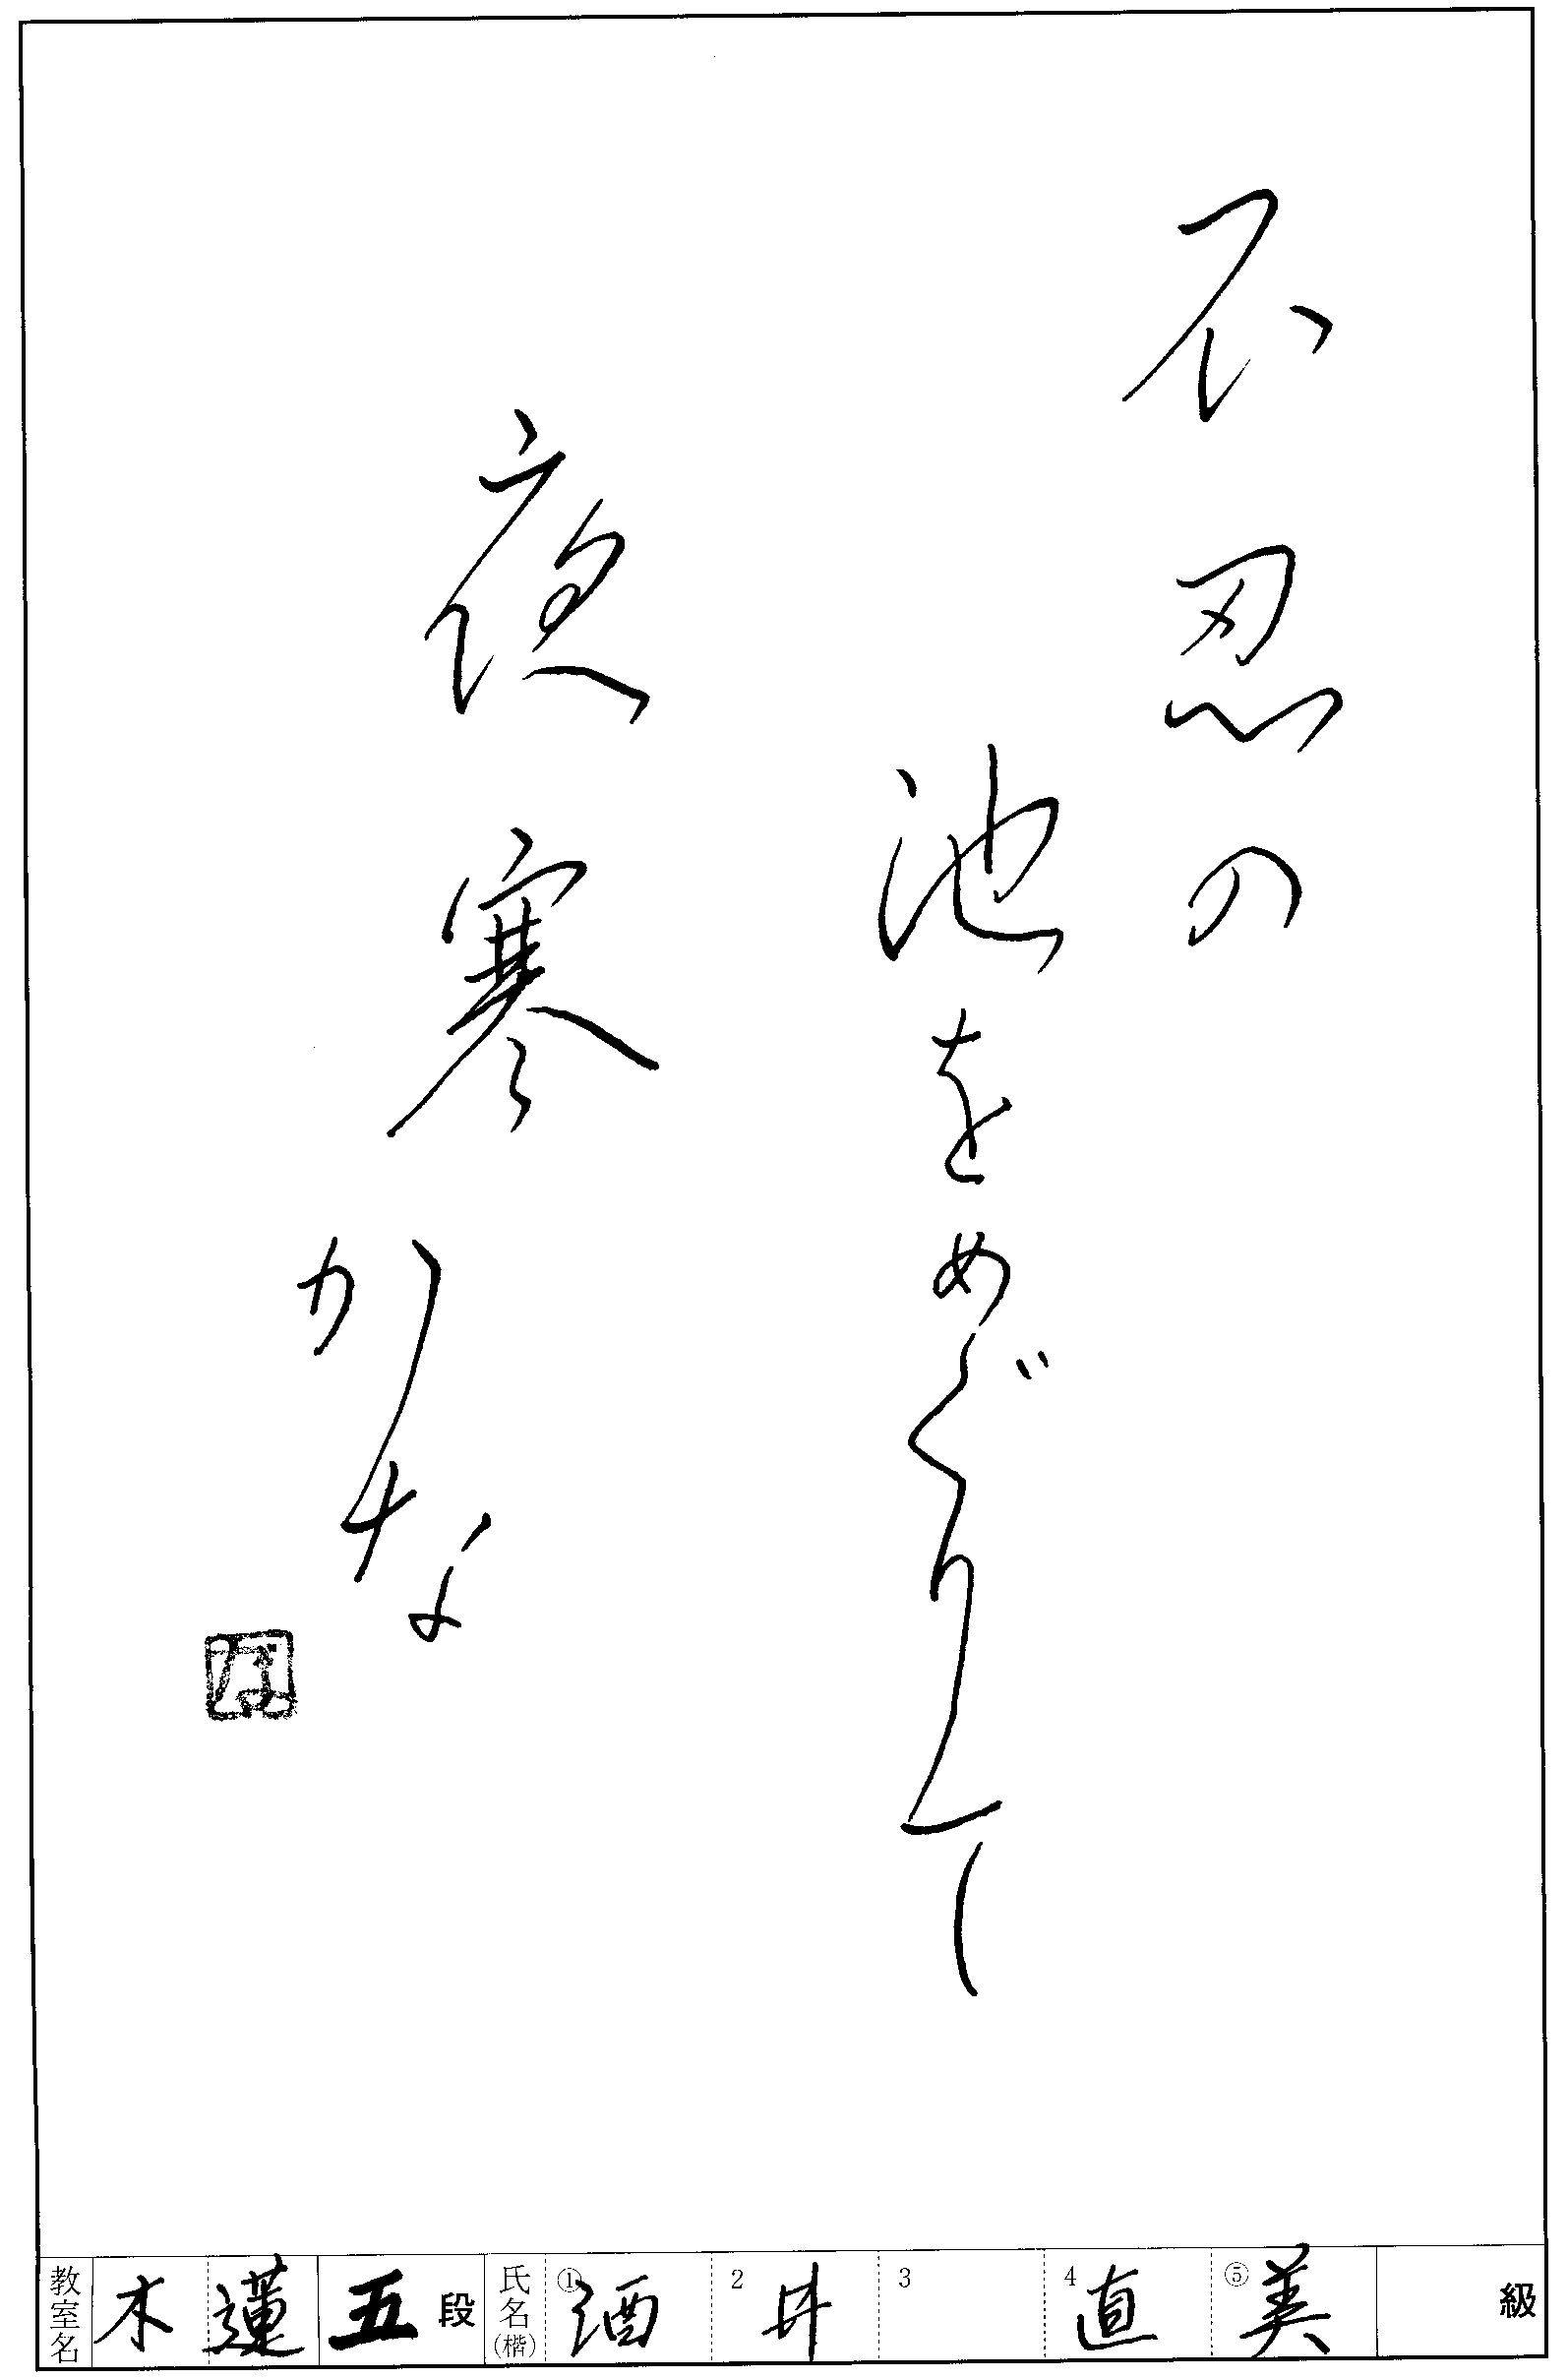 不忍の
池をめぐりて
夜寒かな
教室名 木蓮 五段 氏名(楷) ① 酒 2 井 3 4 直 ⑤ 美 級